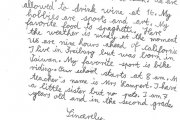 allowed to drink wine at 16. My
hobbies are sports and art. My
favorite food is spaghetti. Here
the weather is windy at the moment
We are nine hours ahead of California
I live in but was born in
Taiwan. My favorite sport is bike
riding. Our school starts at 8 am. My
teacher's name is Mrs. I have
a little sister but no pets. I am
years old and in the second grade
Sincerely,